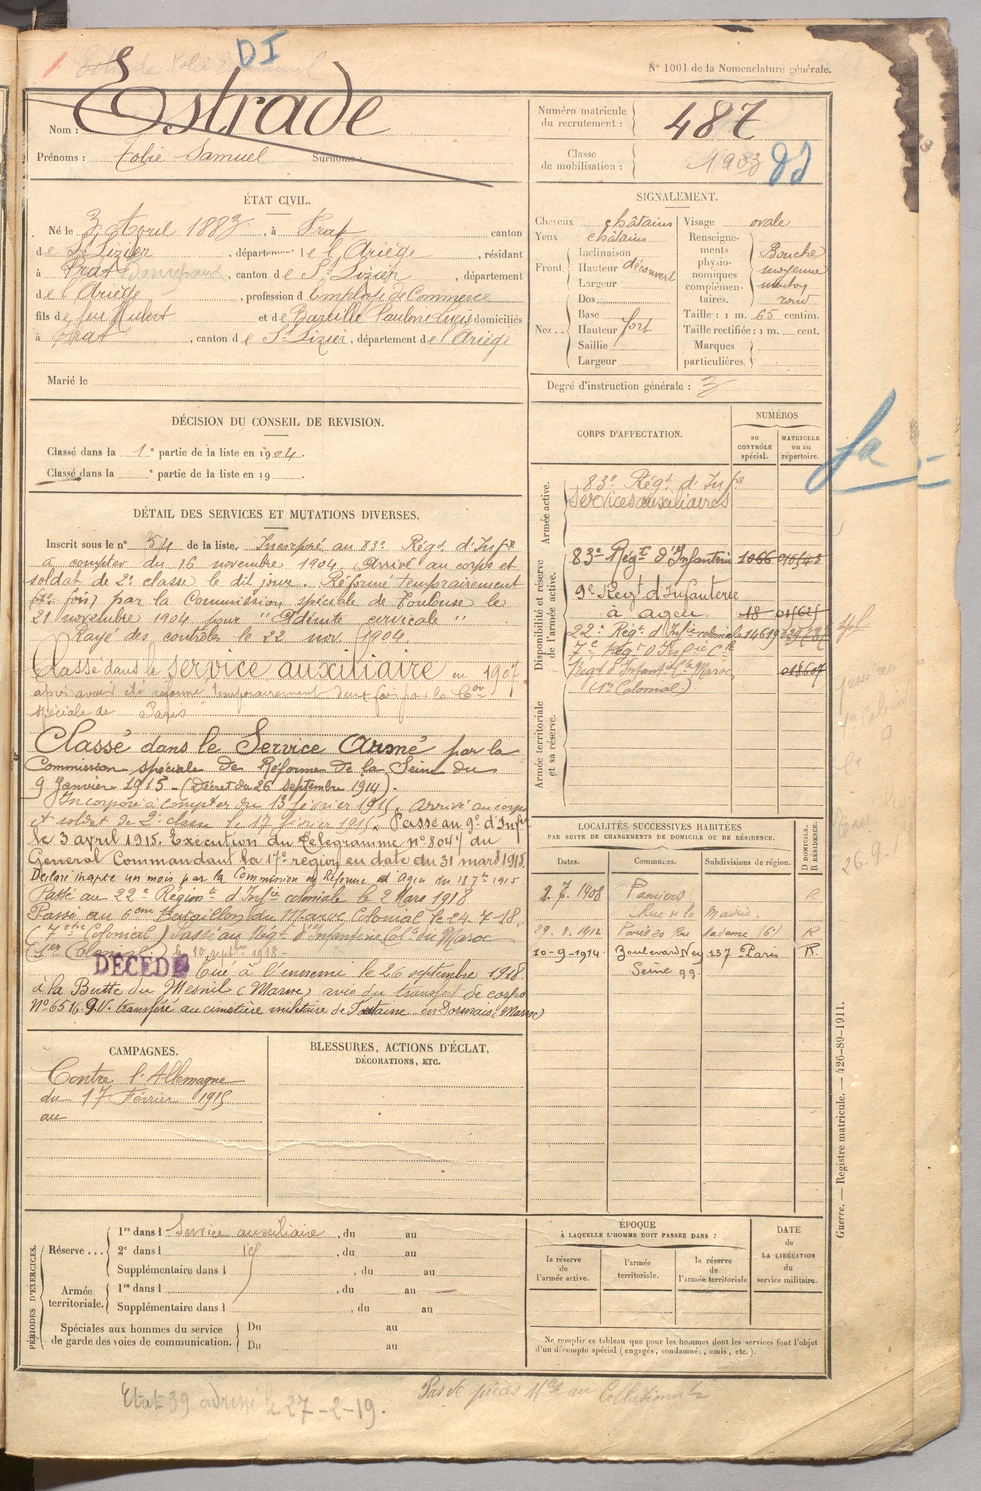 DI
N° 1001 de la Nomenclature générale.
Nom : Estrade
Prénoms : Tolie Samuel Surnoms :
Numéro matricule du recrutement : 487
Classe de mobilisation : 1903
ÉTAT CIVIL.
Né le 3 Avril 1883, à Prat canton
de St Lizier, département de l'Ariège, résidant
à Prat Bonrepaux, canton de St Lizier, département
de l'Ariège, profession d'Employé de Commerce
fils de feu Hubert et de Bareille Pauline Lucie domiciliés
à Prat, canton de St Lizier, département de l'Ariège
Marié le
SIGNALEMENT.
Cheveux châtains
Yeux châtains
Front. Inclinaison
Hauteur découvert
Largeur
Nez. Dos
Base
Hauteur fort
Saillie
Largeur
Visage ovale
Renseignements physionomiques complémentaires. Bouche moyenne menton rond
Taille : 1 m. 65 centim.
Taille rectifiée : 1 m. cent.
Marques particulières.
Degré d'instruction générale : 3
DÉCISION DU CONSEIL DE REVISION.
Classé dans la 1re partie de la liste en 1904.
Classé dans la e partie de la liste en 19
DÉTAIL DES SERVICES ET MUTATIONS DIVERSES.
Inscrit sous le n° 54 de la liste, Incorporé au 83e Régt d'Infie
à compter du 16 novembre 1904. Arrivé au corps et
soldat de 2e classe le dit jour. Réformé temporairement
(1re fois) par la Commission spéciale de Toulouse le
21 novembre 1904 pour "Adénite cervicale"
Rayé des contrôles le 22 nov. 1904.
Classé dans le service auxiliaire en 1907
après avoir été réformé temporairement deux fois par la Con
spéciale de Paris
Classé dans le Service Armé par la
Commission spéciale de Réforme de la Seine du
9 Janvier 1915 - (Décret du 26 septembre 1914).
Incorporé à compter du 13 février 1915, Arrivé au corps
et soldat de 2e classe le 17 février 1915. Passé au 9e d'Infie
le 3 avril 1915. Exécution du télégramme n° 804/ du
Général Commandant la 17e région en date du 31 mars 1915
Déclaré inapte un mois par la Commission de Réforme d'Agen du 18 7bre 1915
Passé au 22e Régiment d'Infie coloniale le 2 Mars 1918
Passé au 6eme Bataillon du Maroc Colonial le 24-7-18
(7eme Colonial) Passé au Régt d'Infanterie Cle du Maroc
(1er Colonial) le 17 septbre 1918.
DÉCÉDÉ Tué à l'ennemi le 26 septembre 1918
à la Butte du Mesnil (Marne) avis du transfert de corps
N° 6516 transféré au cimetière militaire de Fontaine en Dormois (Marne)
CORPS D'AFFECTATION.
NUMÉROS
au CONTRÔLE spécial.
MATRICULE ou au répertoire.
Armée active.
83e Régt d'Infie
Services auxiliaires
Disponibilité et réserve de l'armée active.
83e Régt d'Infanterie 1066
9e Régt d'Infanterie
à Agen 18
22e Régt d'Infie coloniale 14619
7e Régt d'Infie Cle
Régt d'Infant. Cle Maroc 018607
(1er Colonial)
Armée territoriale et sa réserve.
LOCALITÉS SUCCESSIVES HABITÉES
PAR SUITE DE CHANGEMENTS DE DOMICILE OU DE RÉSIDENCE.
Dates. Communes. Subdivisions de région. D DOMICILE, R RÉSIDENCE.
2.7.1908 Pamiers R
Rue de la Mairie.
29.8.1912 Paris 20 Rue Madame (6e) R
10-9-1914 Boulevard Ney 137 Paris R.
Seine 99
26.9.1
CAMPAGNES.
Contre l'Allemagne
du 17 Février 1915
au
BLESSURES, ACTIONS D'ÉCLAT,
DÉCORATIONS, ETC.
PÉRIODES D'EXERCICES.
Réserve ... 1re dans l Service auxiliaire, du au
2e dans l id, du au
Supplémentaire dans l , du au
Armée territoriale. 1re dans l , du au
Supplémentaire dans l , du au
Spéciales aux hommes du service de garde des voies de communication. Du au
Du au
ÉPOQUE
À LAQUELLE L'HOMME DOIT PASSER DANS :
la réserve de l'armée active.
l'armée territoriale.
la réserve de l'armée territoriale
DATE de LA LIBÉRATION du service militaire.
Ne remplir ce tableau que pour les hommes dont les services font l'objet
d'un décompte spécial (engagés, condamnés, omis, etc.).
Guerre. — Registre matricule. — 426-89-1911.
Etat 39 adressé le 27-2-19.
Pas de pièces Mle au